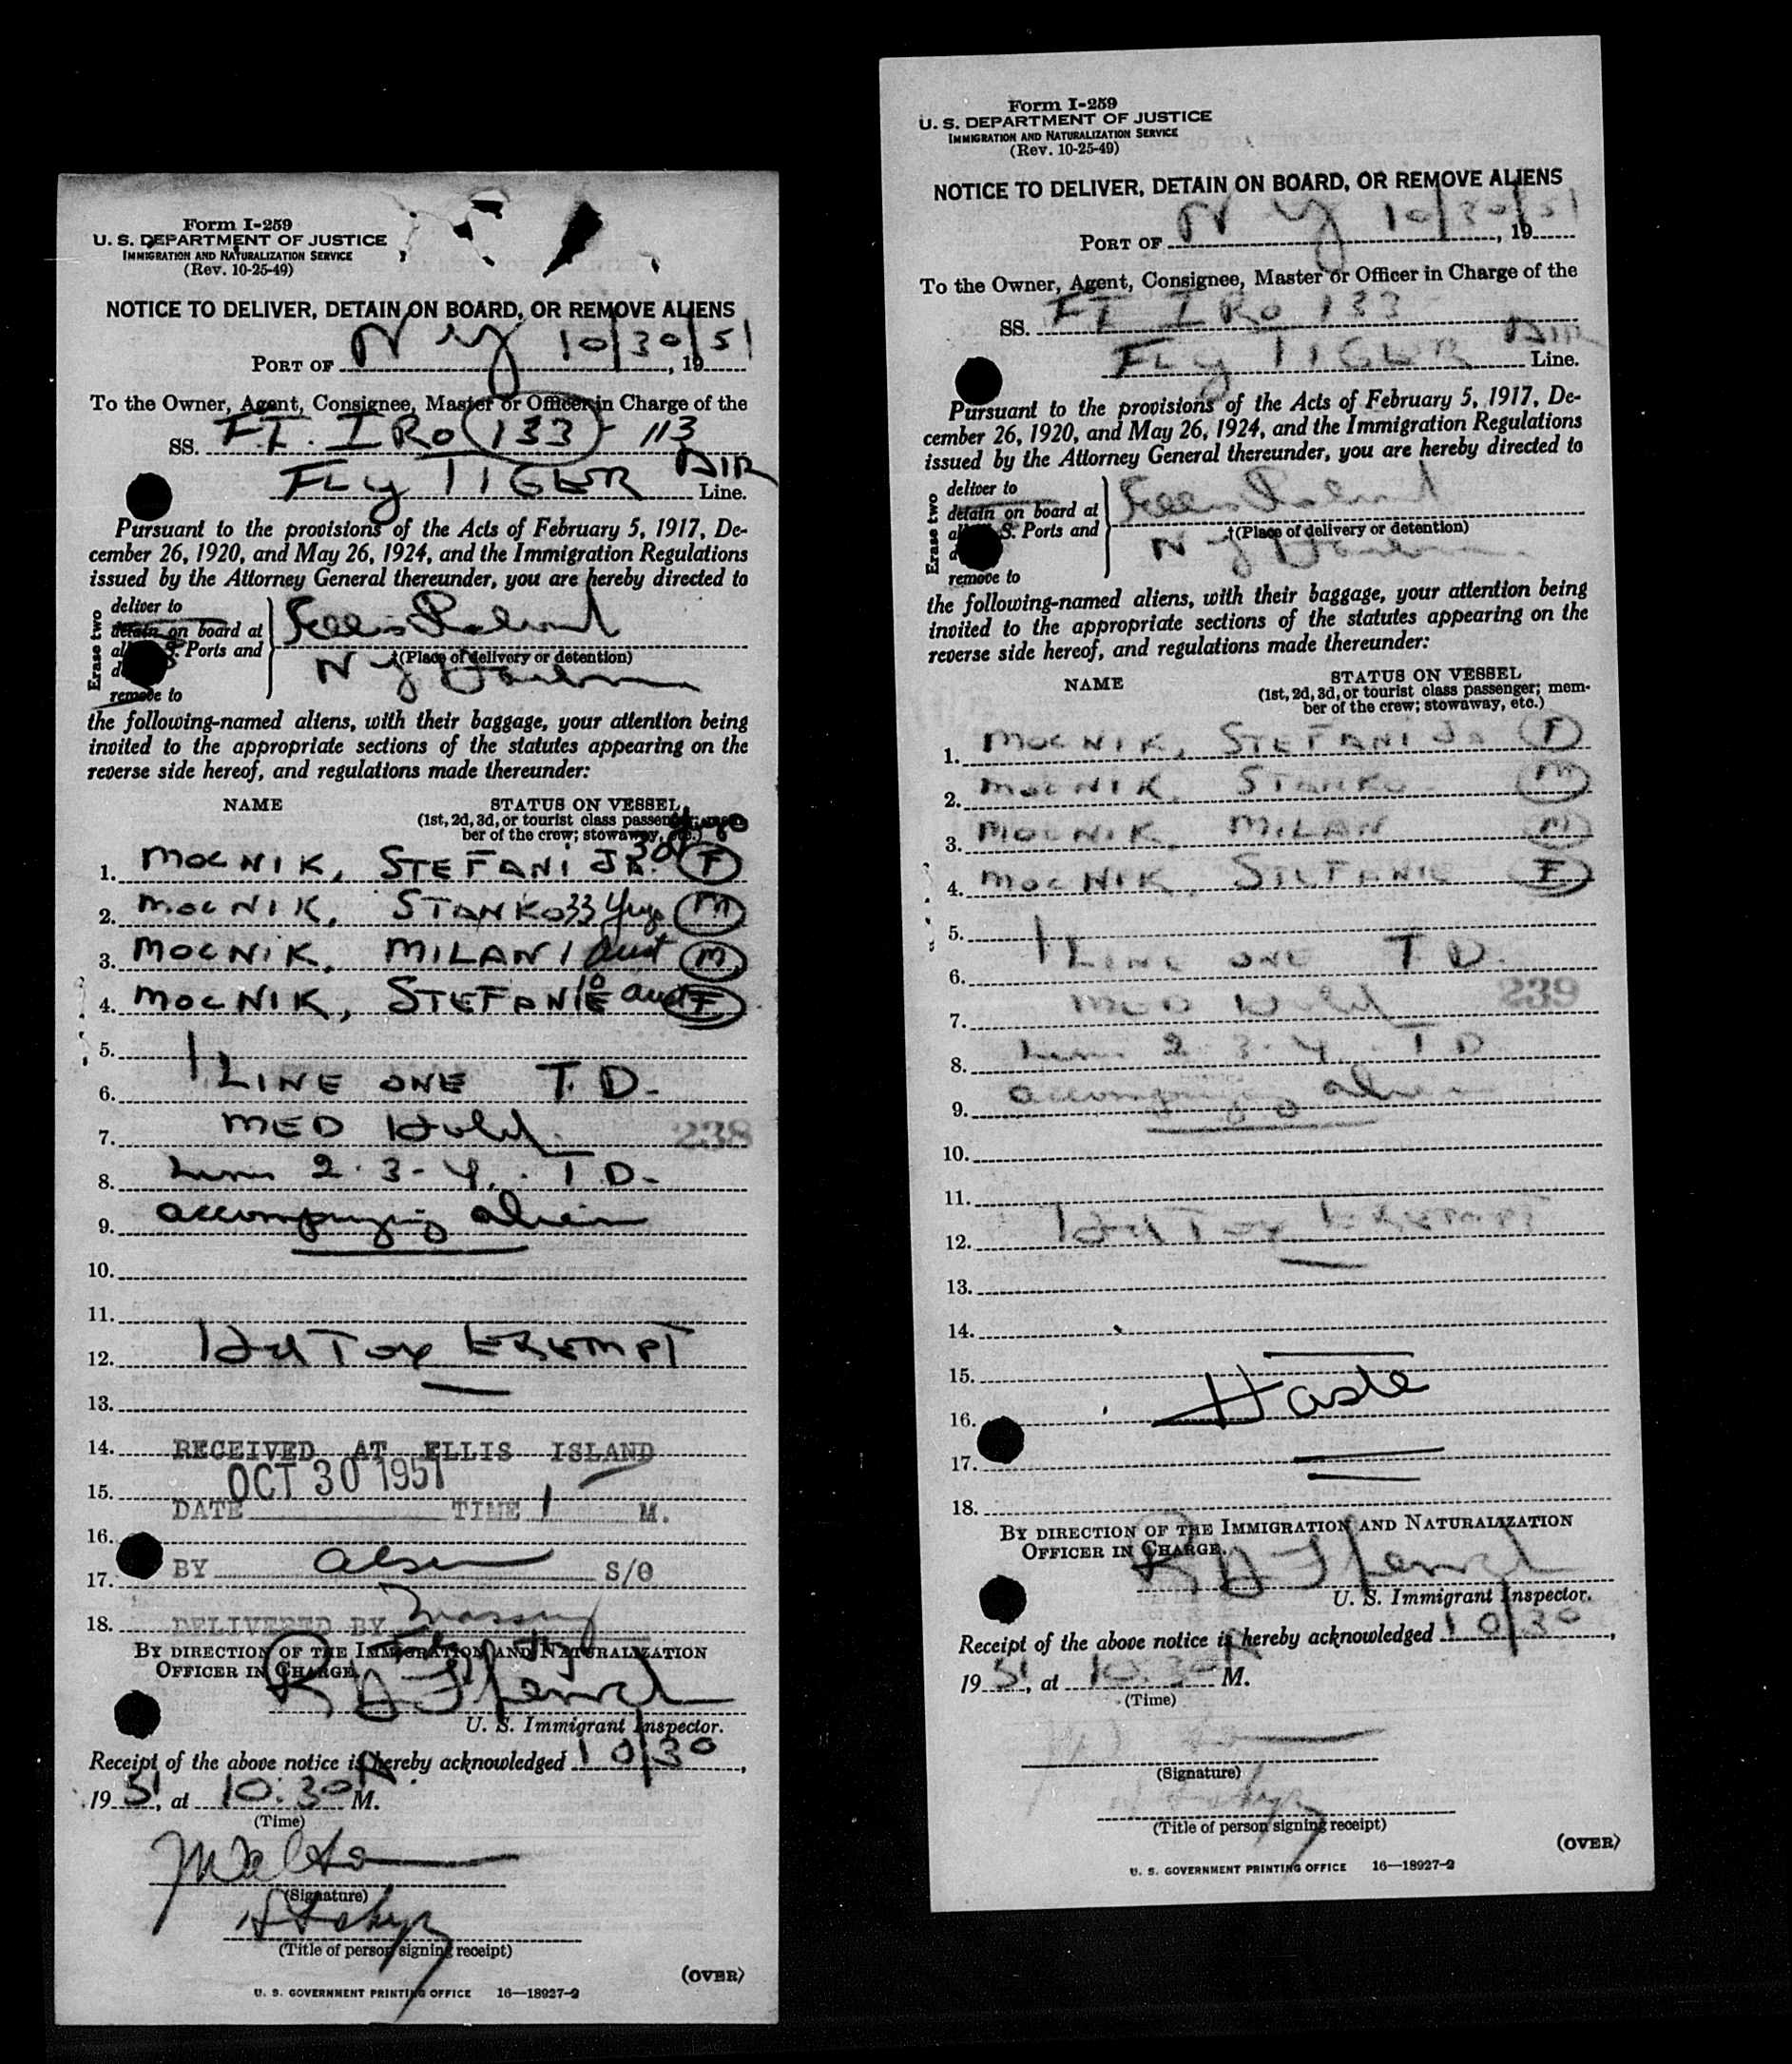 Form I-259
U. S. DEPARTMENT OF JUSTICE
IMMIGRATION AND NATURALIZATION SERVICE
(Rev. 10-25-49)
NOTICE TO DELIVER, DETAIN ON BOARD, OR REMOVE ALIENS
PORT OF N Y 10/30/51, 19
To the Owner, Agent, Consignee, Master or Officer in Charge of the
SS. FT. IRO 133 - 113
FLY TIGER AIR Line.
Pursuant to the provisions of the Acts of February 5, 1917, De-
cember 26, 1920, and May 26, 1924, and the Immigration Regulations
issued by the Attorney General thereunder, you are hereby directed to
Erase two
deliver to
detain on board at
S. Ports and
remove to
Ellis Island
†(Place of delivery or detention)
N Y Harbor
the following-named aliens, with their baggage, your attention being
invited to the appropriate sections of the statutes appearing on the
reverse side hereof, and regulations made thereunder:
NAME STATUS ON VESSEL
(1st, 2d, 3d, or tourist class passenger; mem-
ber of the crew; stowaway, etc.)
1. MOCNIK, STEFANIJA 30 F
2. MOCNIK, STANKO 33 Yugo M
3. MOCNIK, MILAN 1 Aust M
4. MOCNIK, STEFANIE 10 Aust F
5.
6. LINE ONE T. D.
7. MED Hold. 238
8. Lines 2-3-4. T. D.
9. accompanying alien
10.
11.
12. Hd Tax EXEMPT
13.
14. RECEIVED AT ELLIS ISLAND
OCT 30 1951
15. DATE TIME 1 M.
16.
BY Olsen S/O
17.
18. DELIVERED BY
BY DIRECTION OF THE IMMIGRATION AND NATURALIZATION
OFFICER IN CHARGE.
U. S. Immigrant Inspector.
Receipt of the above notice is hereby acknowledged 10/30,
19 51, at 10:30 A M.
(Time)
(Signature)
(Title of person signing receipt)
(OVER)
U. S. GOVERNMENT PRINTING OFFICE 16—18927-2
Form I-259
U. S. DEPARTMENT OF JUSTICE
IMMIGRATION AND NATURALIZATION SERVICE
(Rev. 10-25-49)
NOTICE TO DELIVER, DETAIN ON BOARD, OR REMOVE ALIENS
PORT OF N Y 10/30/51, 19
To the Owner, Agent, Consignee, Master or Officer in Charge of the
SS. FT IRO 133
FLY TIGER AIR Line.
Pursuant to the provisions of the Acts of February 5, 1917, De-
cember 26, 1920, and May 26, 1924, and the Immigration Regulations
issued by the Attorney General thereunder, you are hereby directed to
Erase two
deliver to
detain on board at
S. Ports and
remove to
Ellis Island
†(Place of delivery or detention)
N Y Harbor
the following-named aliens, with their baggage, your attention being
invited to the appropriate sections of the statutes appearing on the
reverse side hereof, and regulations made thereunder:
NAME STATUS ON VESSEL
(1st, 2d, 3d, or tourist class passenger; mem-
ber of the crew; stowaway, etc.)
1. MOCNIK, STEFANIJA F
2. MOCNIK, STANKO M
3. MOCNIK, MILAN M
4. MOCNIK, STEFANIE F
5.
6. LINE ONE T. D.
7. MED Hold 239
8. Lines 2-3-4. T D
9. accompanying alien
10.
11.
12. Hd Tax EXEMPT
13.
14.
15.
16. Haste
17.
18.
BY DIRECTION OF THE IMMIGRATION AND NATURALIZATION
OFFICER IN CHARGE.
U. S. Immigrant Inspector.
Receipt of the above notice is hereby acknowledged 10/30,
19 51, at 10:30 A M.
(Time)
(Signature)
(Title of person signing receipt)
(OVER)
U. S. GOVERNMENT PRINTING OFFICE 16—18927-2